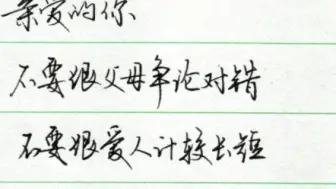 亲爱的你
不要跟父母争论对错
不要跟爱人计较长短